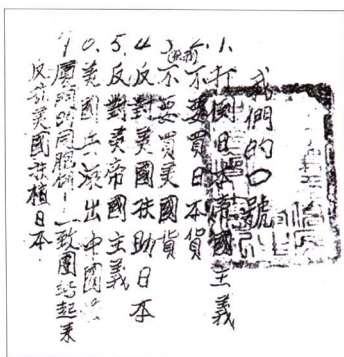 我們的口號
1. 打倒日本帝國主義
2. 不要買日本貨
3. 不要買美國貨
4. 反對美國扶助日本
5. 反對美帝國主義
6. 美國兵滾出中國
7. 同胞們一致團結起来
反对美國扶植日本.